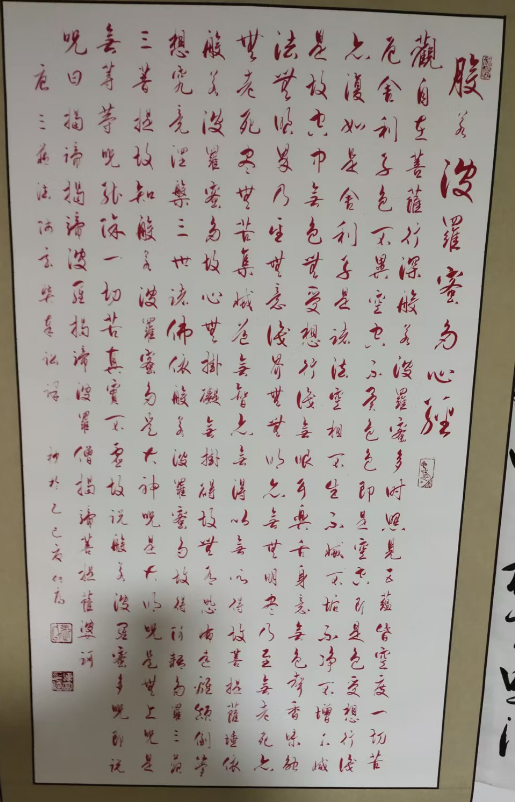 般若波羅蜜多心經
觀自在菩薩行深般若波羅蜜多時照見五蘊皆空度一切苦
厄舍利子色不異空空不異色色即是空空即是色受想行識
亦復如是舍利子是諸法空相不生不滅不垢不淨不增不減
是故空中無色無受想行識無眼耳鼻舌身意無色聲香味觸
法無眼界乃至無意識界無無明亦無無明盡乃至無老死亦
無老死盡無苦集滅道無智亦無得以無所得故菩提薩埵依
般若波羅蜜多故心無掛礙無掛礙故無有恐怖遠離顛倒夢
想究竟涅槃三世諸佛依般若波羅蜜多故得阿耨多羅三藐
三菩提故知般若波羅蜜多是大神呪是大明呪是無上呪是
無等等呪能除一切苦真實不虛故說般若波羅蜜多呪即說
呪曰揭諦揭諦波羅揭諦波羅僧揭諦菩提薩婆訶
唐三藏法師玄奘奉詔譯 於乙巳